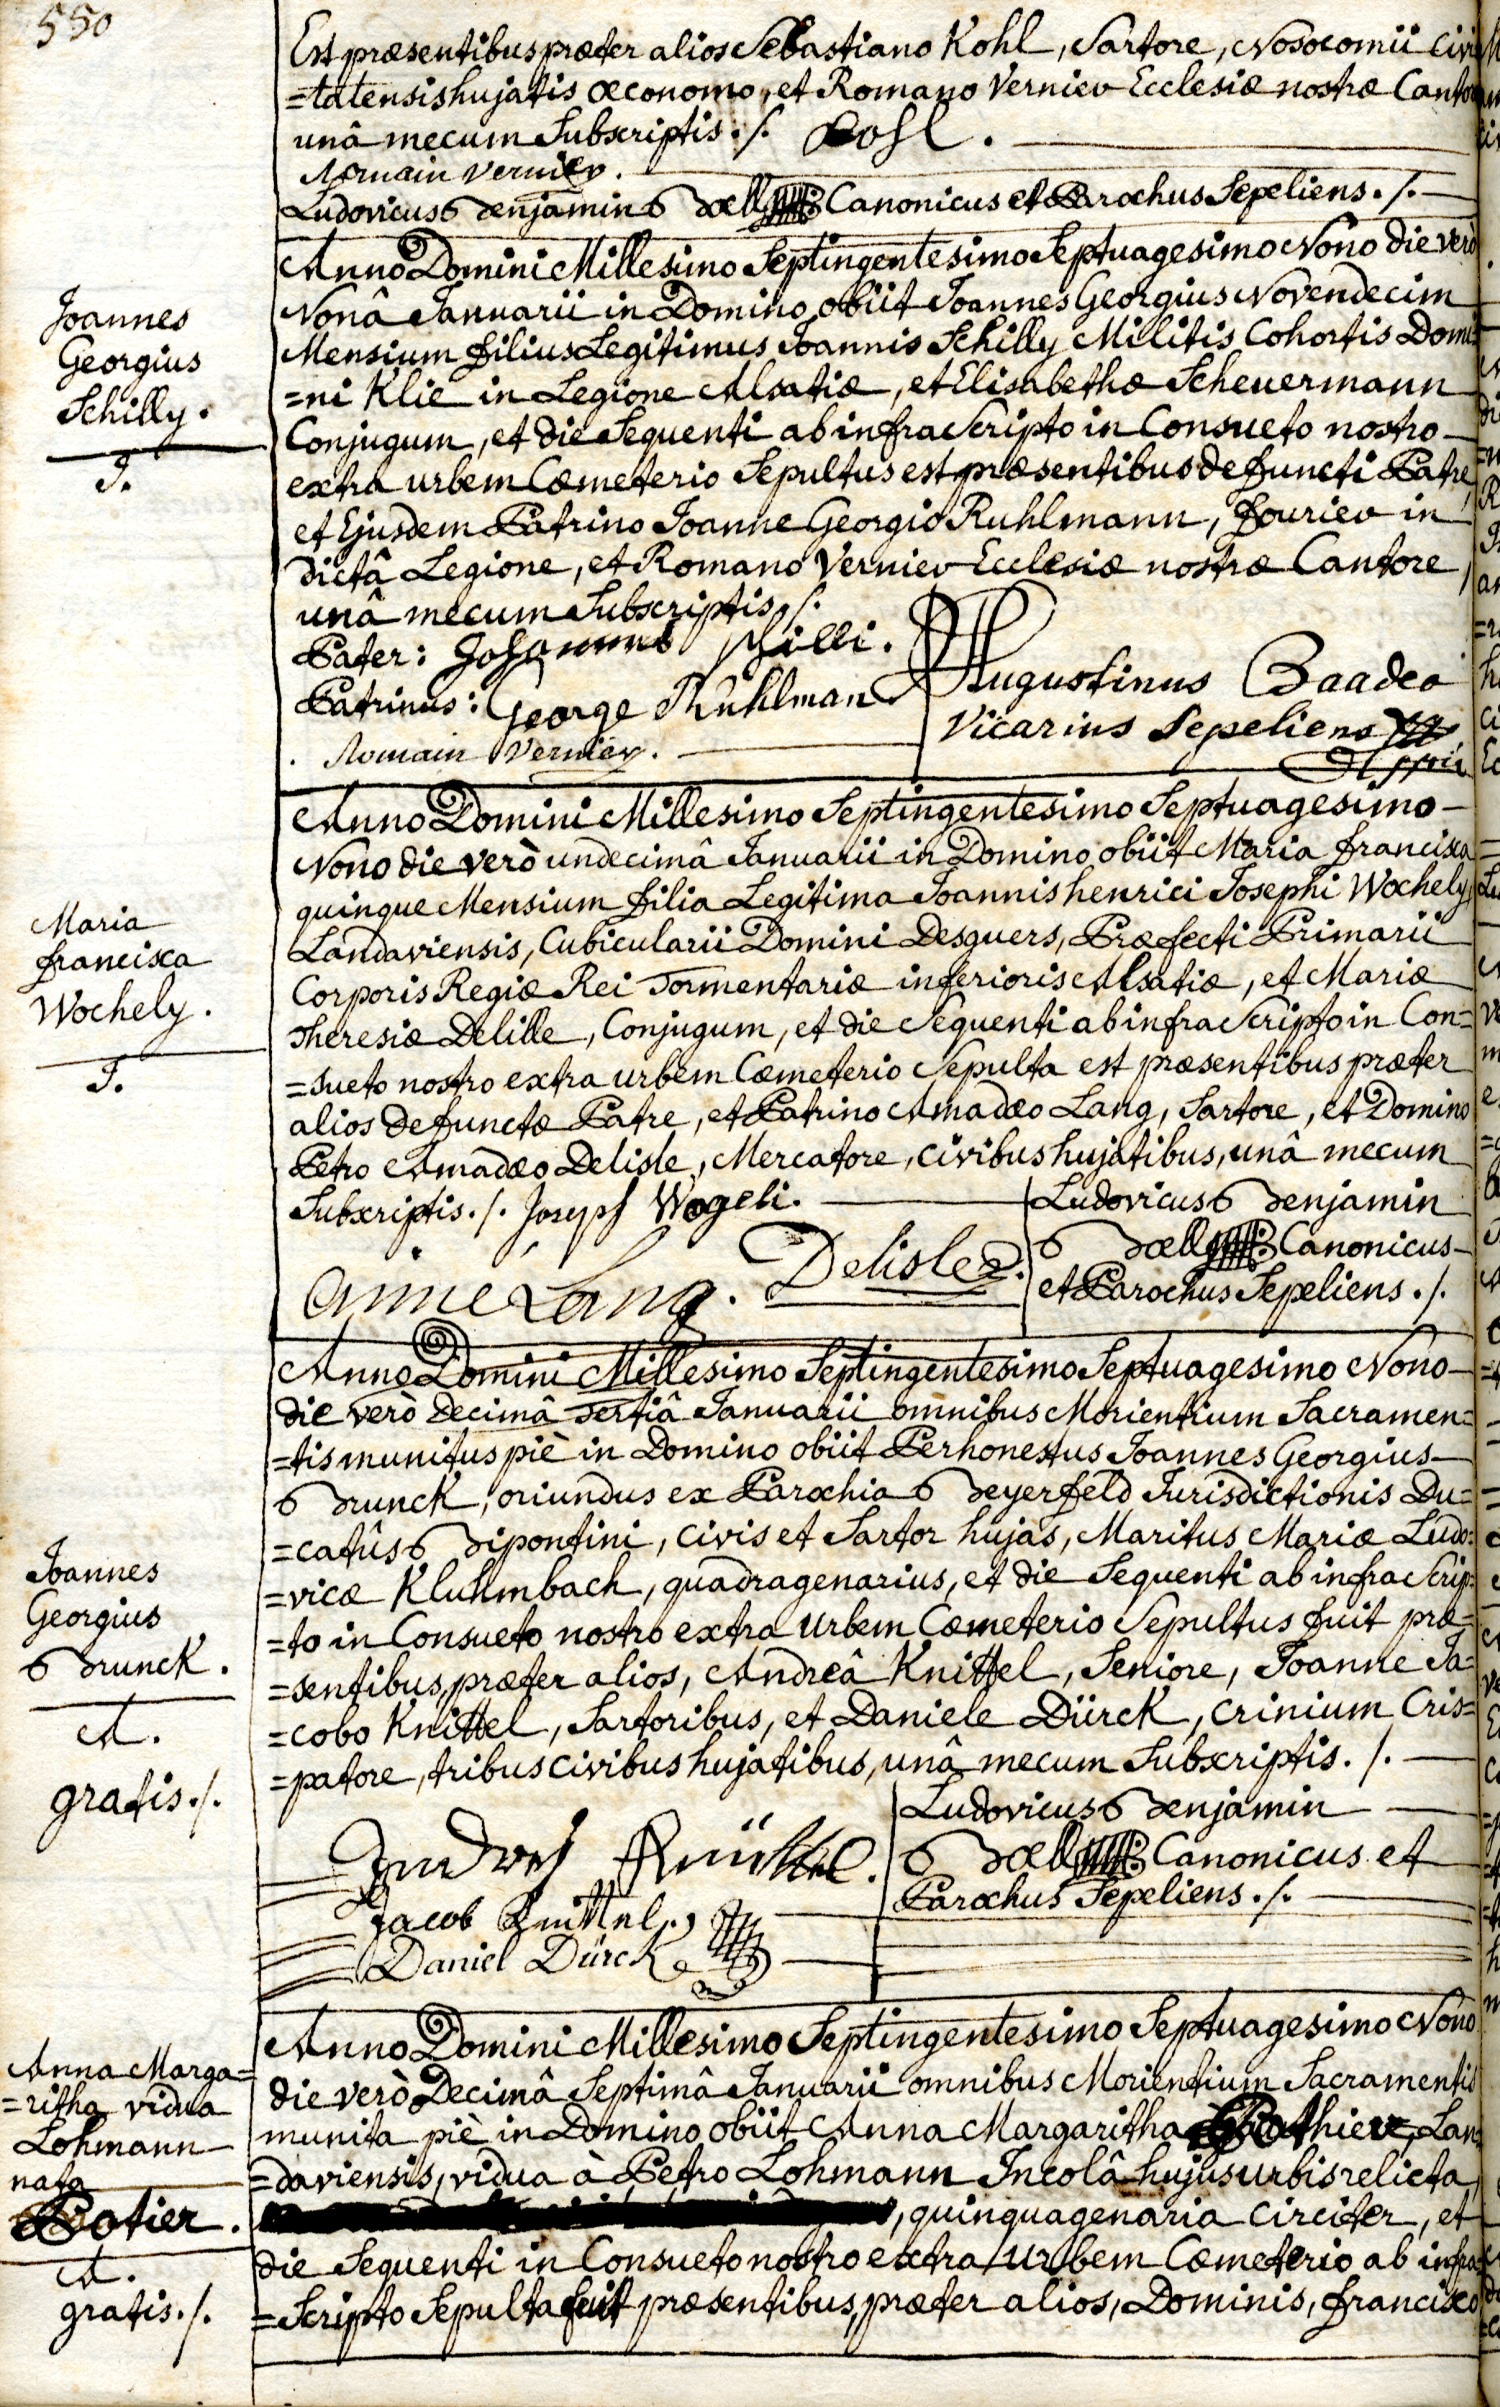 550
Est præsentibus præter alios Sebastiano Kohl, Sartore, Nosocomii Civi
=tatensis hujatis œconomo, et Romano Vernier Ecclesiæ nostræ Cantore
unâ mecum Subscriptis ./. Kohl.
Romain Vernier.
Ludovicus Benjamin Boell Canonicus et Parochus Sepeliens ./.
Joannes
Georgius
Schilly.
J.
Anno Domini Millesimo Septingentesimo Septuagesimo Nono die verò
Nonâ Januarii in Domino obiit Joannes Georgius Novendecim
Mensium filius Legitimus Joannis Schilly Militis Cohortis Domi
=ni Klie in Legione Alsatiæ, et Elisabethæ Scheuermann
Conjugum, et die Sequenti ab infra Scripto in Consueto nostro
extra urbem Cœmeterio Sepultus est præsentibus defuncti Patre,
et Ejusdem Patrino Joanne Georgio Ruhlmann, fourier in
dictâ Legione, et Romano Vernier Ecclesiæ nostræ Cantore,
unâ mecum Subscriptis ./.
Pater: Johannes Schilli.
Patrinus: George Ruhlman
Romain Vernier.
Augustinus Baader
Vicarius Sepeliens
Maria
francisca
Wochely.
J.
Anno Domini Millesimo Septingentesimo Septuagesimo
Nono die verò undecimâ Januarii in Domino obiit Maria francisca
quinque Mensium filia Legitima Joannis henrici Josephi Wochely,
Landaviensis, Cubicularii Domini Desguers, Præfecti Primarii
Corporis Regiæ Rei Tormentariæ inferioris Alsatiæ, et Mariæ
Theresiæ Delille, Conjugum, et die Sequenti ab infra Scripto in Con=
=sueto nostro extra urbem Cœmeterio Sepulta est præsentibus præter
alios defunctæ Patre, et Patrino Amadæo Lang, Sartore, et Domino
Petro Amadæo Delisle, Mercatore, civibus hujatibus, unâ mecum
Subscriptis ./. Joseph Wogeli.
Lang. Delisle.
Ludovicus Benjamin
Boell Canonicus
et Parochus Sepeliens ./.
Joannes
Georgius
Brunck.
A.
gratis ./.
Anno Domini Millesimo Septingentesimo Septuagesimo Nono
die verò Decimâ Tertiâ Januarii omnibus Morientium Sacramen=
=tis munitus piè in Domino obiit Perhonestus Joannes Georgius
Brunck, oriundus ex Parochia Beyerfeld Jurisdictionis Du=
=catûs Bipontini, Civis et Sartor hujas, Maritus Mariæ Ludo=
=vicæ Kluhmbach, quadragenarius, et die Sequenti ab infra Scrip=
=to in Consueto nostro extra urbem Cœmeterio Sepultus fuit præ=
=sentibus, præter alios, Andreâ Knittel, Seniore, Joanne Ja=
=cobo Knittel, Sartoribus, et Daniele Dürck, Crinium Cris=
=patore, tribus civibus hujatibus, unâ mecum Subscriptis ./.
Andres Knüttel.
Jacob Knittel
Daniel Dürck
Ludovicus Benjamin
Boell Canonicus et
Parochus Sepeliens ./.
Anna Marga=
=ritha vidua
Lohmann
nata
Potier.
A.
gratis ./.
Anno Domini Millesimo Septingentesimo Septuagesimo Nono
die verò Decimâ Septimâ Januarii omnibus Morientium Sacramentis
munita piè in Domino obiit Anna Margaritha Pothier, Lan=
=daviensis, vidua à Petro Lohmann Incolâ hujus urbis relicta,
, quinquagenaria circiter, et
die Sequenti in Consueto nostro extra urbem Cœmeterio ab infra
=Scripto Sepulta fuit præsentibus, præter alios, Dominis, francisco